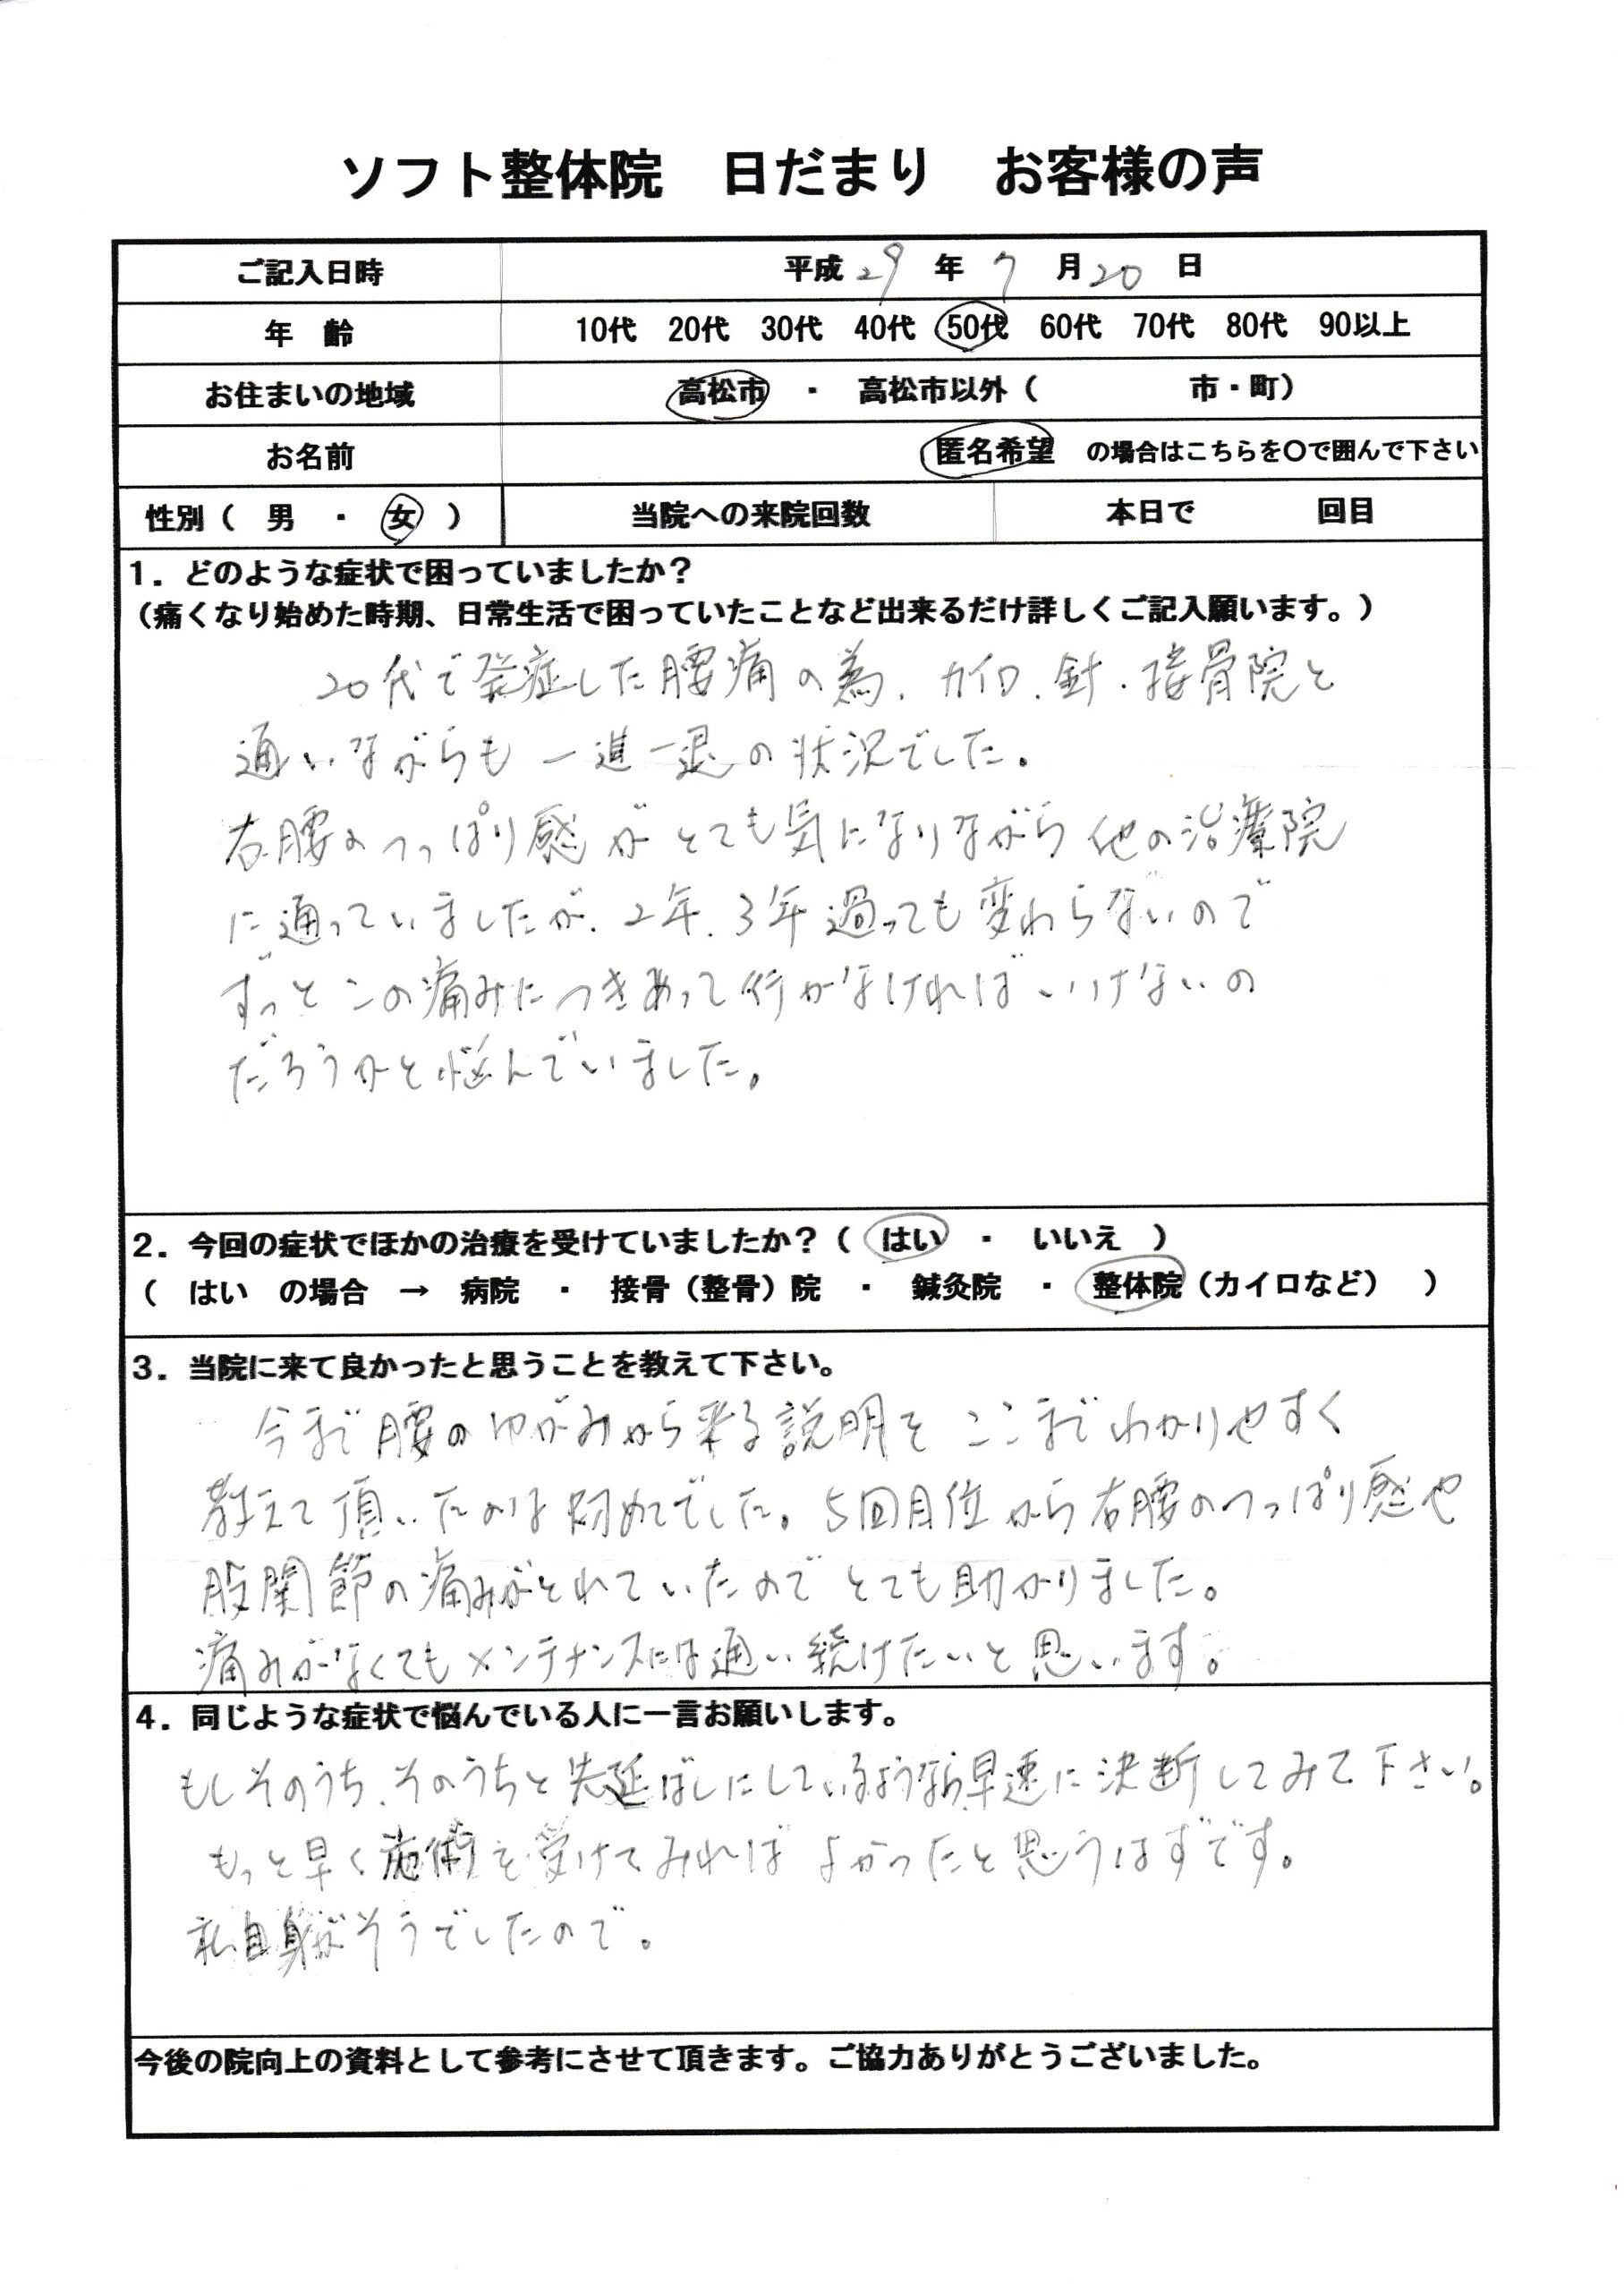 ソフト整体院　日だまり　お客様の声
ご記入日時　平成 29 年 7 月 20 日
年　齢　10代　20代　30代　40代　50代　60代　70代　80代　90以上
お住まいの地域　高松市　・　高松市以外（　　　　　市・町）
お名前　匿名希望　の場合はこちらを〇で囲んで下さい
性別（　男　・　女　）　当院への来院回数　本日で　　　回目
1．どのような症状で困っていましたか？
（痛くなり始めた時期、日常生活で困っていたことなど出来るだけ詳しくご記入願います。）
20代で発症した腰痛の為、カイロ、針、接骨院と
通いながらも一進一退の状況でした。
右腰のつっぱり感がとても気になりながら他の治療院
に通っていましたが、2年、3年過っても変わらないので
ずっとこの痛みにつきあって行かなければいけないの
だろうかと悩んでいました。
2．今回の症状でほかの治療を受けていましたか？（　はい　・　いいえ　）
（　はい　の場合　→　病院　・　接骨（整骨）院　・　鍼灸院　・　整体院（カイロなど）　）
3．当院に来て良かったと思うことを教えて下さい。
今まで腰のゆがみから来る説明をここまでわかりやすく
教えて頂いたのは初めてでした。5回目位から右腰のつっぱり感や
股関節の痛みがとれていたのでとても助かりました。
痛みがなくてもメンテナンスには通い続けたいと思います。
4．同じような症状で悩んでいる人に一言お願いします。
もしそのうち、そのうちと先延ばしにしているようなら早速に決断してみて下さい。
もっと早く施術を受けてみればよかったと思うはずです。
私自身がそうでしたので。
今後の院向上の資料として参考にさせて頂きます。ご協力ありがとうございました。